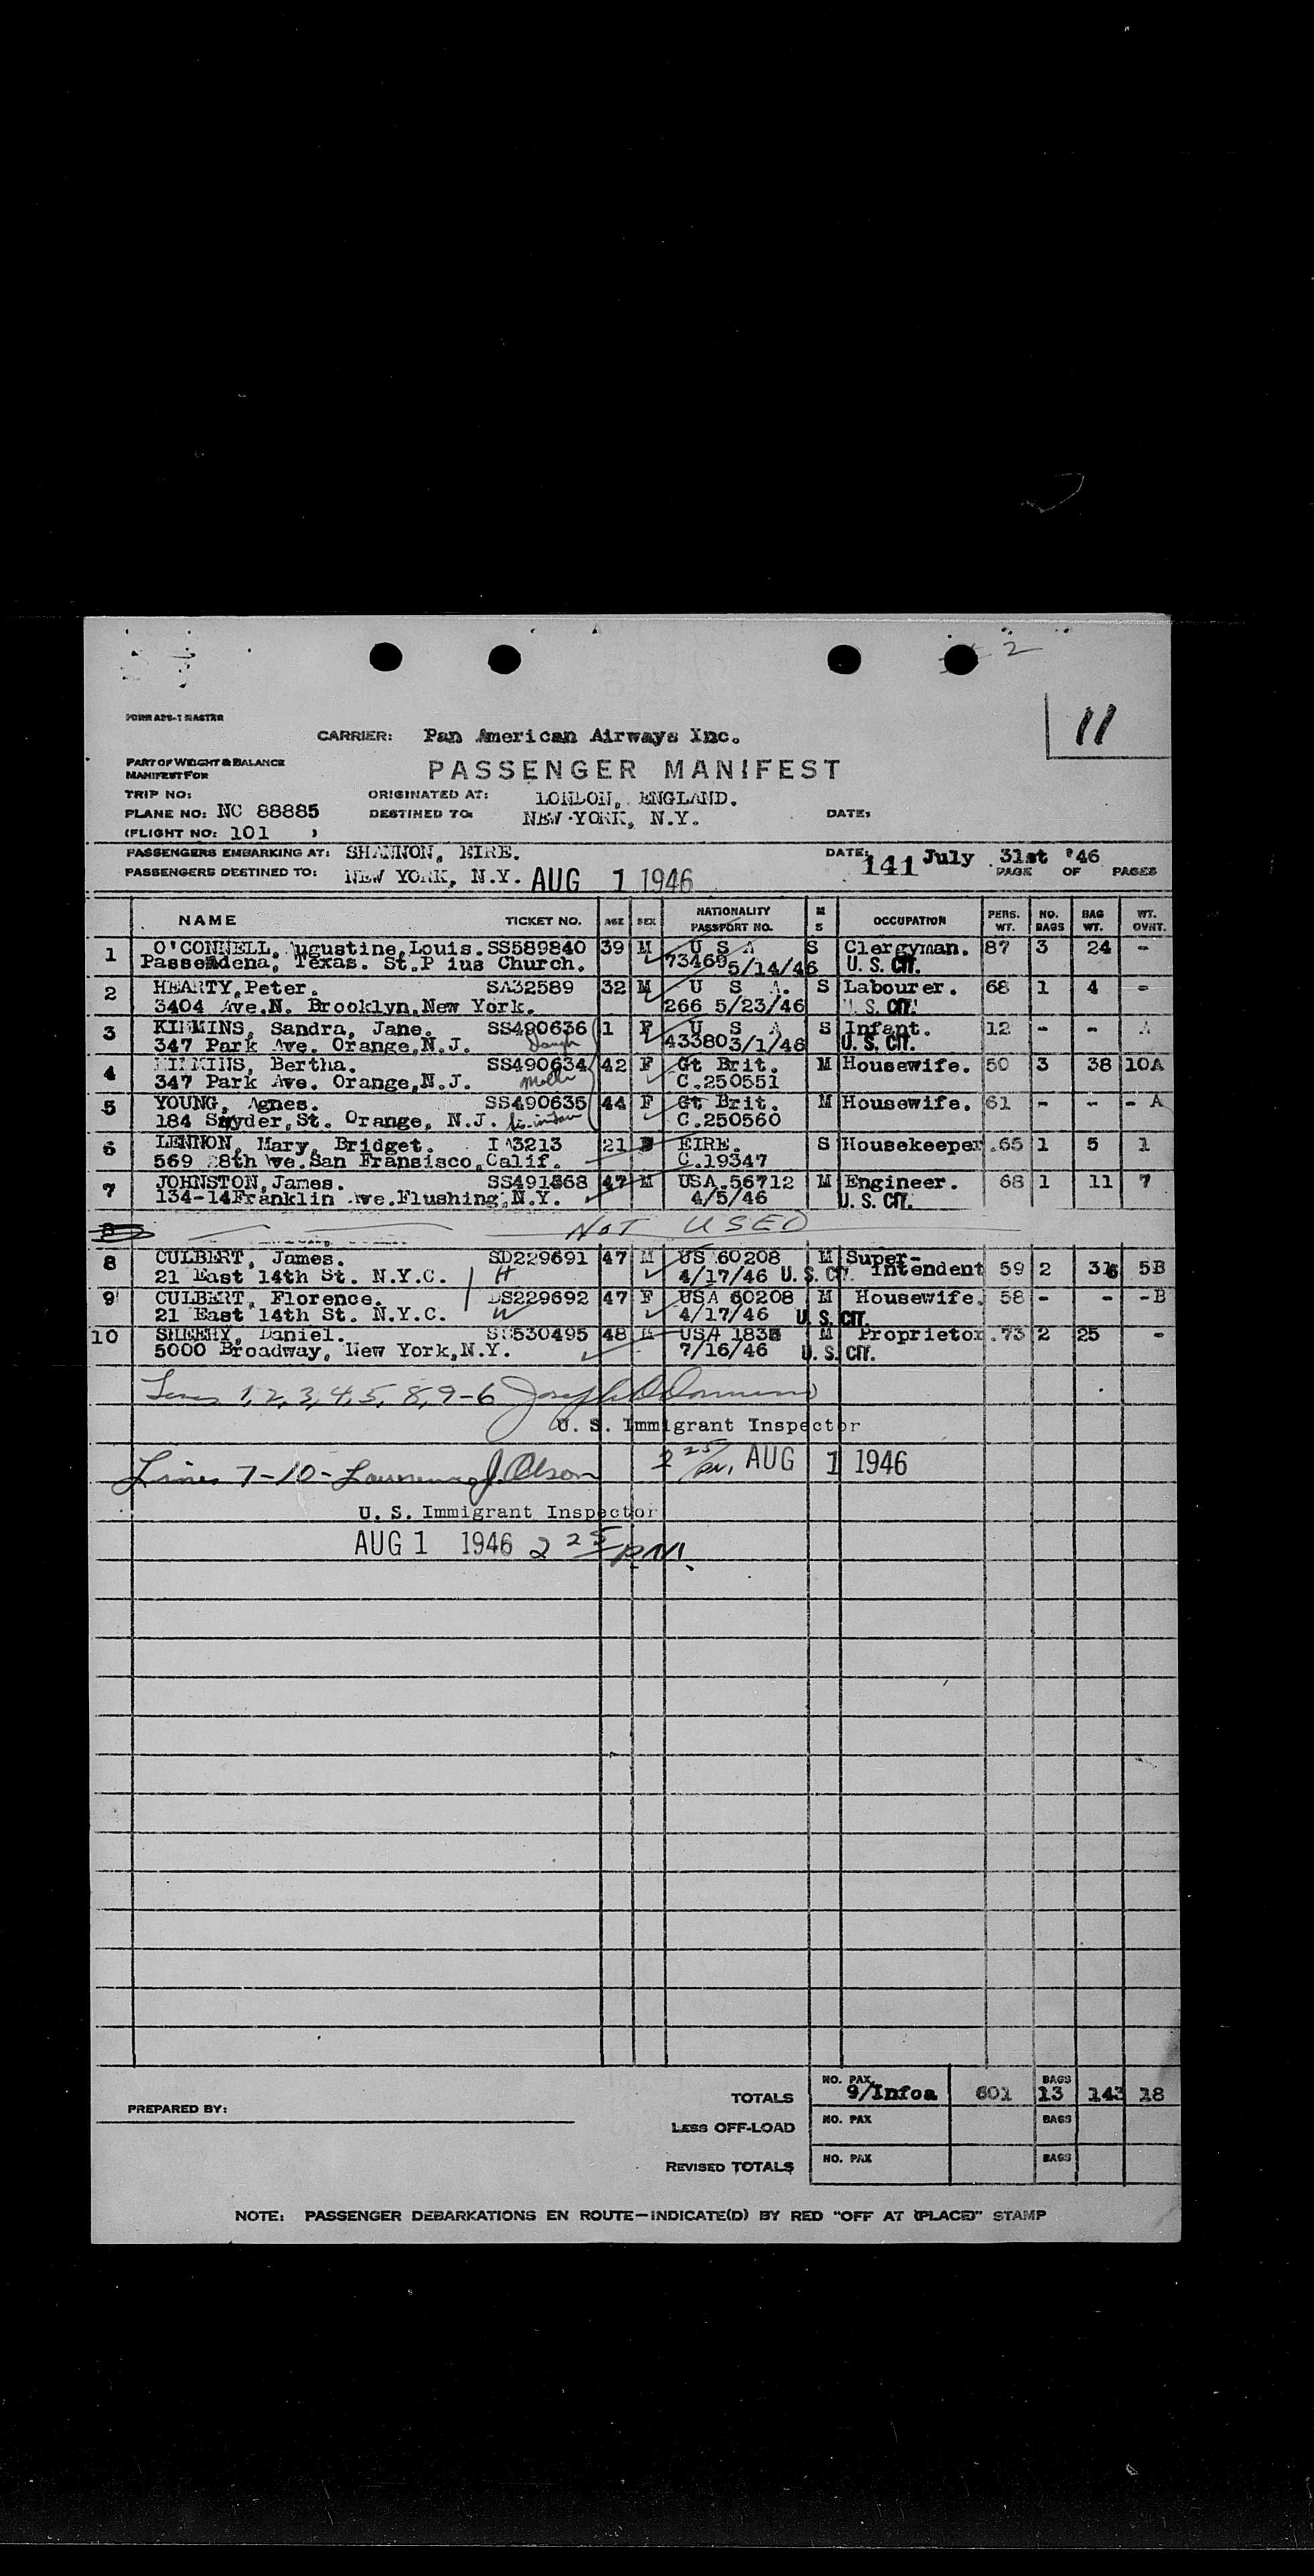 2
11
FORM A29-1 MASTER
CARRIER: Pan American Airways Inc.
PART OF WEIGHT & BALANCE
MANIFEST FOR
PASSENGER MANIFEST
TRIP NO: ORIGINATED AT: LONDON, ENGLAND.
PLANE NO: NC 88885 DESTINED TO: NEW YORK, N.Y. DATE:
(FLIGHT NO: 101 )
PASSENGERS EMBARKING AT: SHANNON, EIRE. DATE: 141 July 31st '46
PASSENGERS DESTINED TO: NEW YORK, N.Y. AUG 1 1946 PAGE OF PAGES
NAME TICKET NO. AGE SEX NATIONALITY PASSPORT NO. M S OCCUPATION PERS. WT. NO. BAGS BAG WT. WT. OVNT.
1 O'CONNELL, Augustine,Louis. SS589840 39 M U S A S Clergyman. 87 3 24 -
Passendena, Texas. St.P ius Church. 73469 5/14/46 U. S. CIT.
2 HEARTY,Peter. SA32589 32 M U S A. S Labourer. 68 1 4 -
3404 Ave.N. Brooklyn,New York. 266 5/23/46 U. S. CIT.
3 KIMMINS, Sandra, Jane. SS490636 1 F U S A S Infant. 12 - - A
347 Park Ave. Orange,N.J. Daugh 43380 3/1/46 U. S. CIT.
4 KIMMINS, Bertha. SS490634 42 F Gt Brit. M Housewife. 50 3 38 10A
347 Park Ave. Orange,N.J. C.250551
5 YOUNG, Agnes. SS490635 44 F Gt Brit. M Housewife. 61 - - - A
184 Snyder,St. Orange, N.J. C.250560
6 LENNON, Mary, Bridget. 21 EIRE. S Housekeeper. 65 1 5 1
569 28th Ave.San Fransisco,Calif. C.19347
7 JOHNSTON,James. 47 M USA.56712 M Engineer. 68 1 11 7
134-14Franklin Ave.Flushing,N.Y. 4/5/46 U. S. CIT.
NOT USED
8 CULBERT, James. SD229691 47 M US 60208 M Super-
21 East 14th St. N.Y.C. H 4/17/46 U. S. CIT. intendent 59 2 5B
9 CULBERT, Florence. 47 F USA 60208 M Housewife. 58 - - -B
21 East 14th St. N.Y.C. W 4/17/46 U. S. CIT.
10 SHEEHY, Daniel. 48 M USA M Proprietor. 73 2 25 -
5000 Broadway, New York,N.Y. 7/16/46 U. S. CIT.
Lines 1,2,3,4,5,8,9-6
U. S. Immigrant Inspector
Lines 7-10- Lawrence J. Olson 2 25 PM. AUG 1 1946
U. S. Immigrant Inspector
AUG 1 1946 2 25 PM.
TOTALS NO. PAX 9/Infoa 601 BAGS 13 143 18
PREPARED BY:
LESS OFF-LOAD NO. PAX BAGS
REVISED TOTALS NO. PAX BAGS
NOTE: PASSENGER DEBARKATIONS EN ROUTE—INDICATE(D) BY RED "OFF AT (PLACE)" STAMP